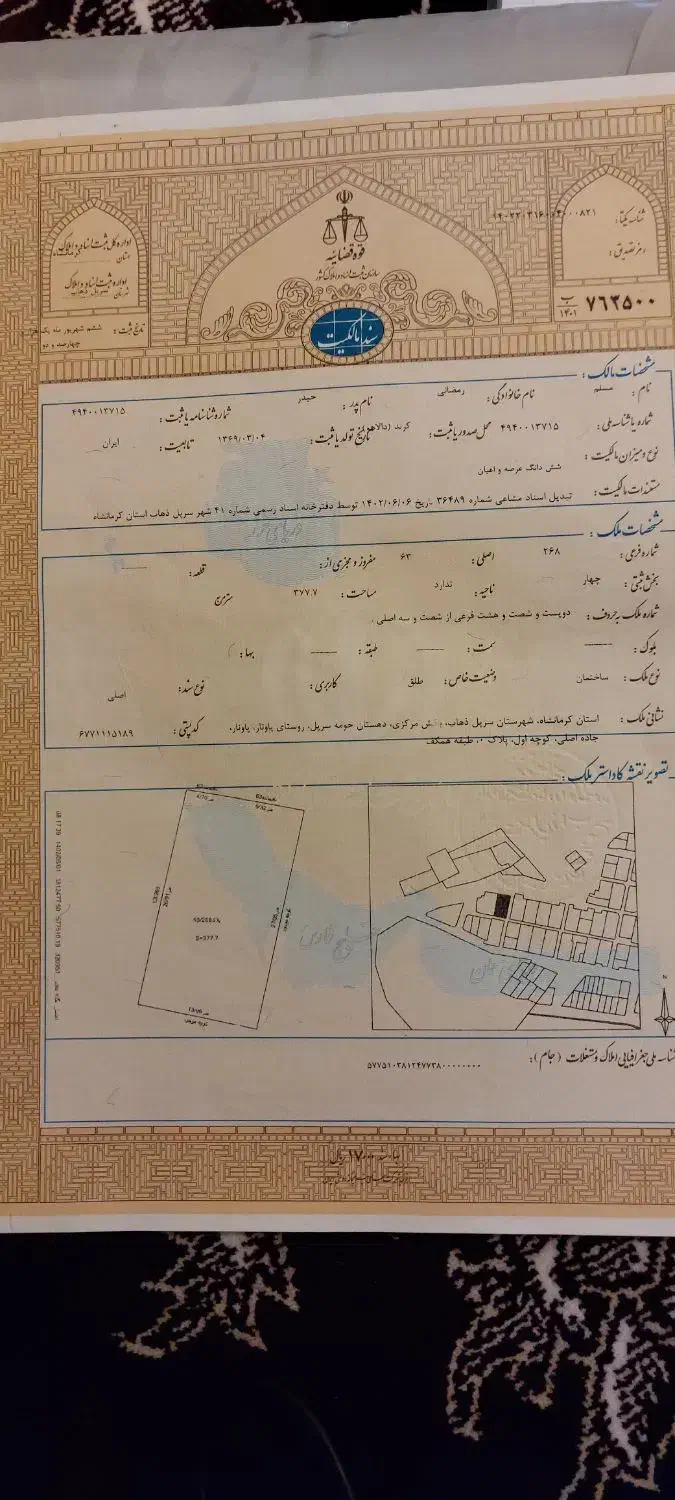 قوه قضائیه
سازمان ثبت اسناد و املاک کشور
سند مالکیت
اداره کل ثبت اسناد و املاک
استان کرمانشاه
اداره ثبت اسناد و املاک
شهرستان سرپل ذهاب
تاریخ ثبت : ششم شهریور ماه یک هزار
چهارصد و دو
شناسه یکتا :
رمز تصدیق :
۷۶۳۵۰۰ ب ۱۴۰۱
مشخصات مالک :
نام : مسلم نام خانوادگی : رمضانی نام پدر : حیدر شماره شناسنامه یا ثبت : ۴۹۴۰۰۱۳۷۱۵
شماره یا شناسه ملی : ۴۹۴۰۰۱۳۷۱۵ محل صدور یا ثبت : کرند تاریخ تولد یا ثبت : ۱۳۶۹/۰۳/۰۴ تابعیت : ایران
نوع و میزان مالکیت : شش دانگ عرصه و اعیان
مستندات مالکیت : تبدیل اسناد مشاعی شماره ۳۶۴۸۹ تاریخ ۱۴۰۲/۰۶/۰۶ توسط دفترخانه اسناد رسمی شماره ۴۱ شهر سرپل ذهاب استان کرمانشاه
مشخصات ملک :
شماره فرعی : ۲۶۸ اصلی : ۶۳ مفروز و مجزی از : قطعه : ——
بخش ثبتی : چهار ناحیه : ندارد مساحت : ۳۷۷.۷ مترمربع
شماره ملک به حروف : دویست و شصت و هشت فرعی از شصت و سه اصلی .
بلوک : —— سمت : —— طبقه : —— بهاء :
نوع ملک : ساختمان وضعیت خاص : طلق کاربری : نوع سند : اصلی
نشانی ملک : استان کرمانشاه، شهرستان سرپل ذهاب، بخش مرکزی، دهستان حومه سرپل، روستای یاونار، یاونار، کد پستی : ۶۷۷۱۱۱۵۱۸۹
جاده اصلی، کوچه اول، پلاک ۰، طبقه همکف
تصویر نقشه کاداستر ملک :
S=377.7
شناسه ملی جغرافیایی املاک و مستغلات (جام) : ۵۷۷۵۱۰۳۸۱۲۴۷۷۳۸۰۰۰۰۰۰۰۰